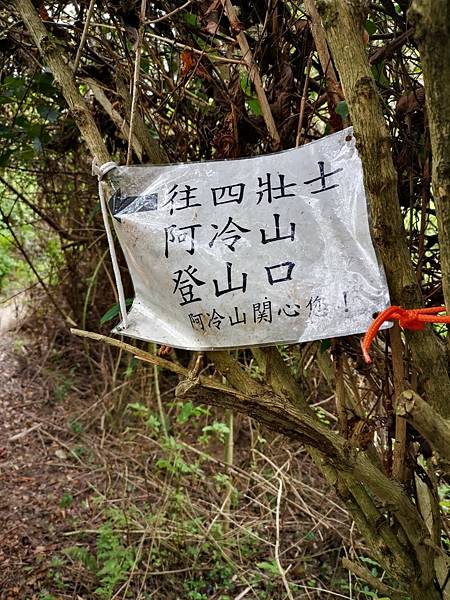 往四壯士
阿冷山
登山口
阿冷山関心您！